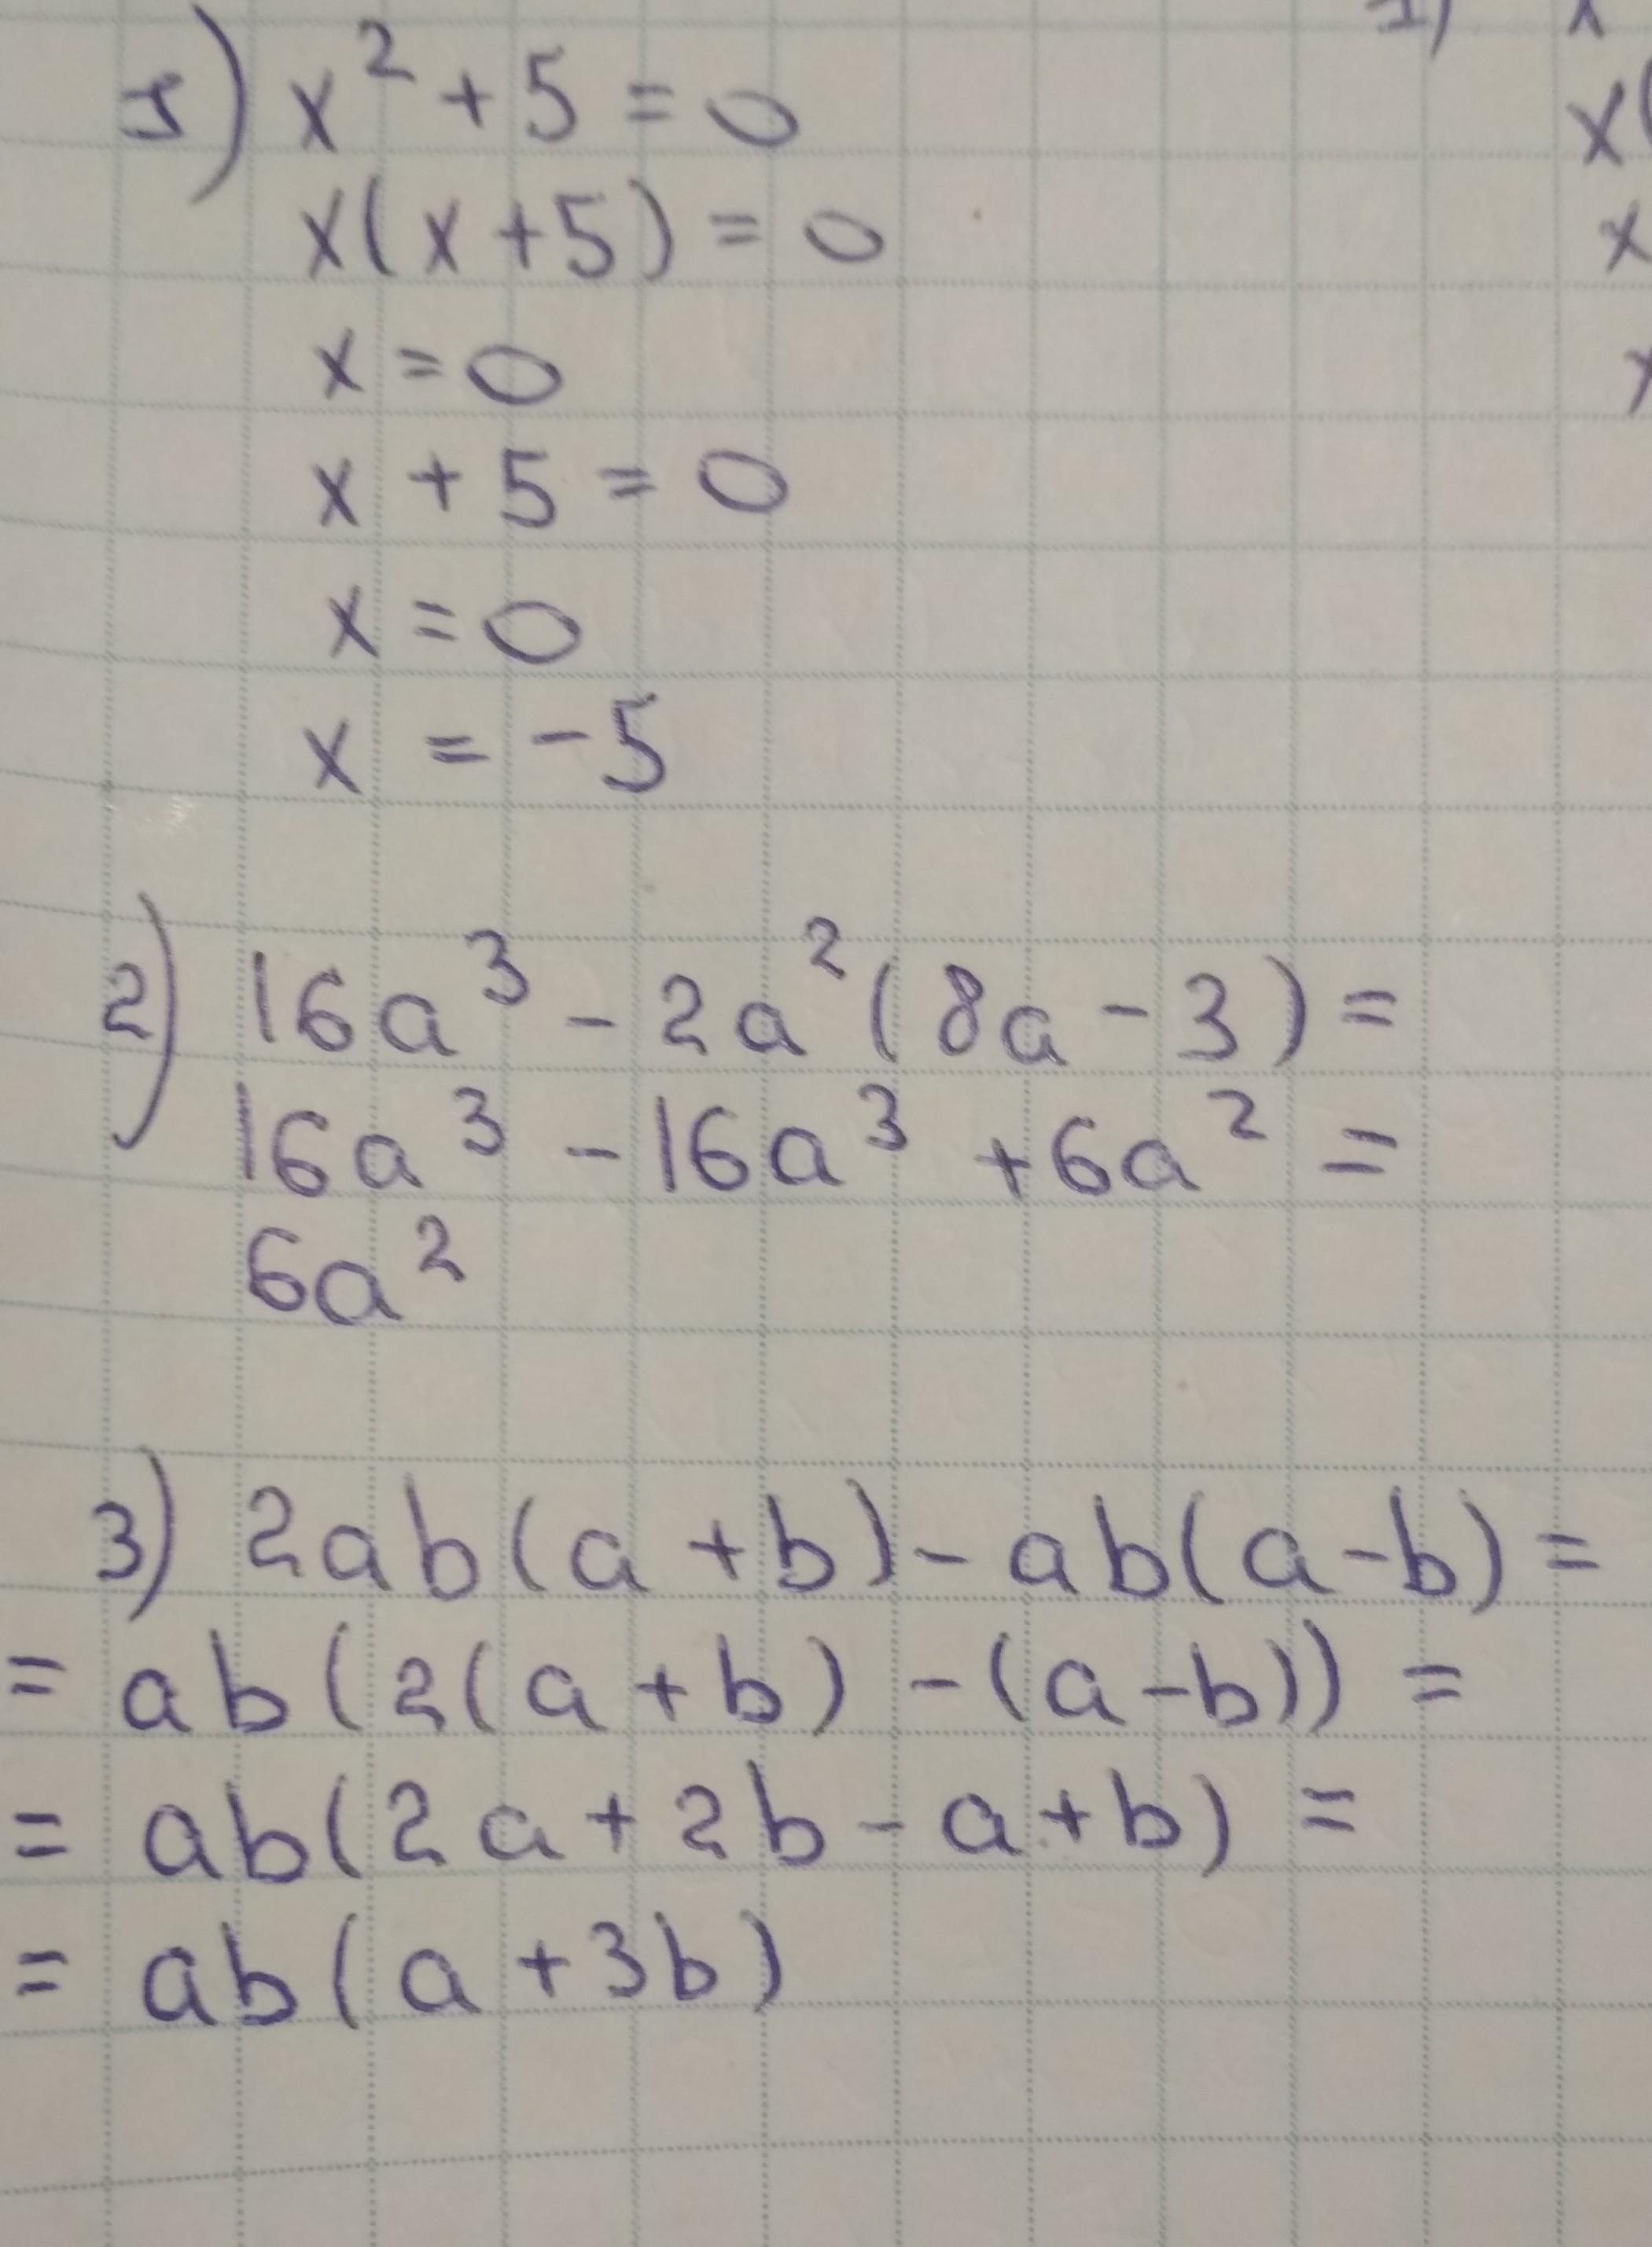 1) x² + 5 = 0
x(x + 5) = 0
x = 0
x + 5 = 0
x = 0
x = -5
2) 16a³ - 2a²(8a - 3) =
16a³ - 16a³ + 6a² =
6a²
3) 2ab(a + b) - ab(a - b) =
= ab(2(a + b) - (a - b)) =
= ab(2a + 2b - a + b) =
= ab(a + 3b)
1) x
x(
x